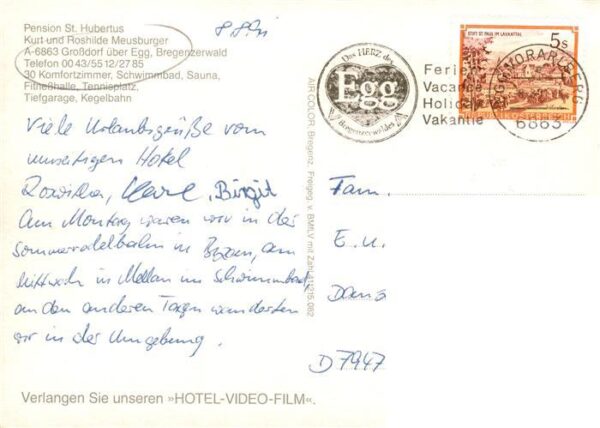 Pension St. Hubertus
Kurt und Roshilde Meusburger
A-6863 Großdorf über Egg, Bregenzerwald
Telefon 00 43/55 12/27 85
30 Komfortzimmer, Schwimmbad, Sauna,
Fitneßhalle, Tennisplatz,
Tiefgarage, Kegelbahn
Viele Urlaubsgrüße vom
Hotel
Karl, Birgit
Am Montag waren wir in der
Sommerrodelbahn in Bizau, am
Mittwoch in Mellau im Schwimmbad,
an den anderen Tagen wanderten
wir in der Umgebung.
Verlangen Sie unseren »HOTEL-VIDEO-FILM«.
AIR COLOR, Bregenz. Freigeg. v. BMLV mit Zahl
Das HERZ des
Egg
Bregenzerwaldes
Ferien
Vacance
Holiday
Vakantie
VORARLBERG
6863
STIFT ST. PAUL IM LAVANTTAL
5s
REPUBLIK ÖSTERREICH
Fam.
E. U.
D 7947